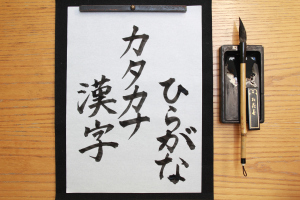 ひらがな
カタカナ
漢字